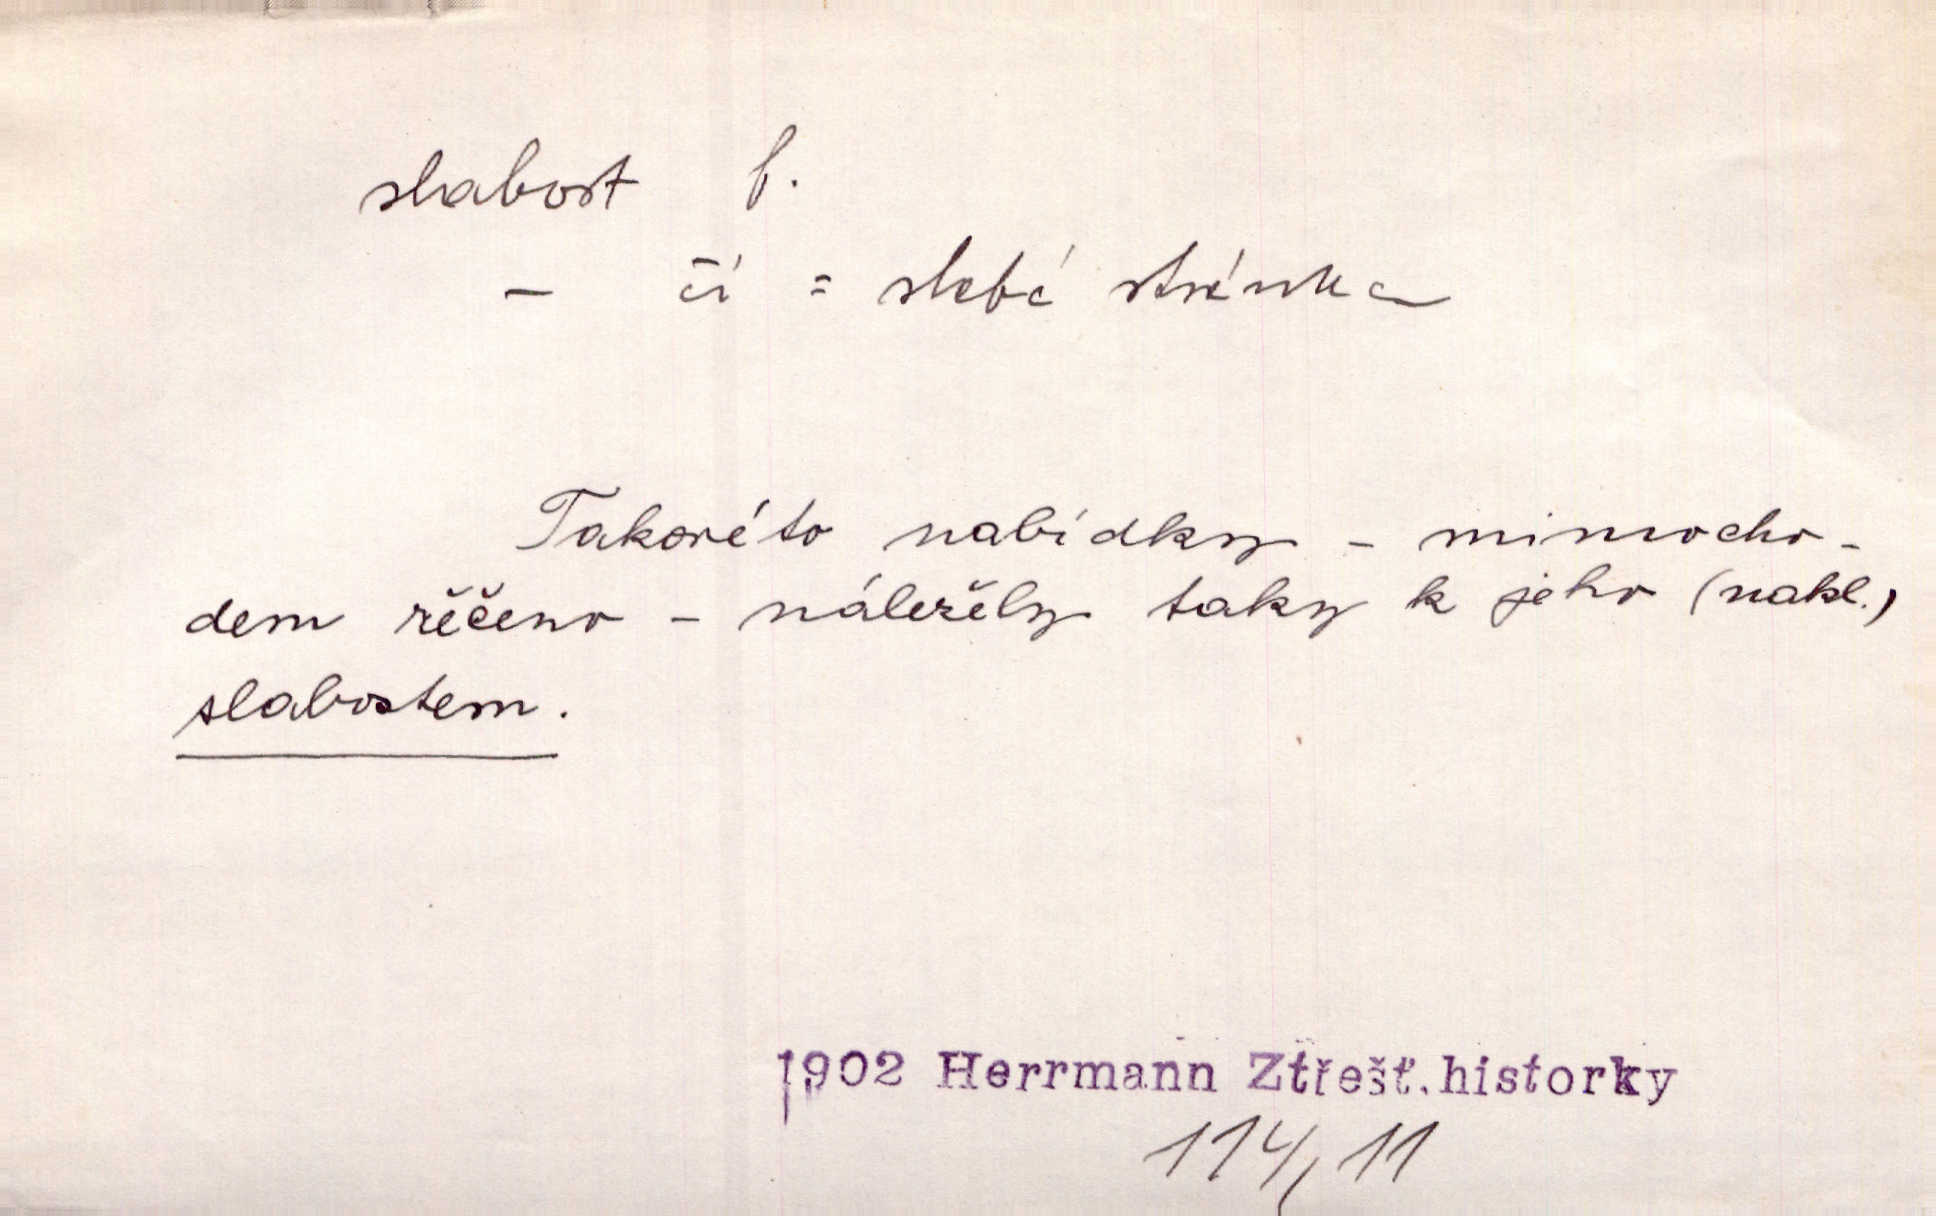 slabost f.
– čí = slabá stránka
Takovéto nabídky – mimocho-
dem řečeno – náležely taky k jeho (nakl.)
slabostem.
1902 Herrmann Ztřešť. historky
114, 11